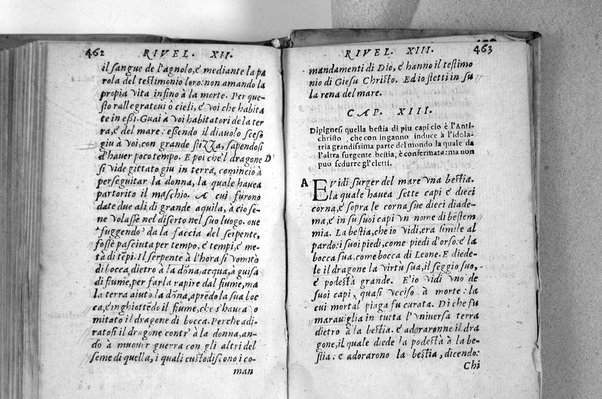 462 RIVEL. XII.
il sangue de l'agnolo, e mediante la pa
rola del testimonio loro: non amando la
propia vita infino à la morte. Per que
sto rallegrateui ò cieli, e voi che habita
te in essi. Guai à voi habitatori de la ter
ra, e del mare: essendo il diauolo sceso
giu à voi, con grande stizza, sapendosi
d'hauer poco tempo. E poi che'l dragone D
si vide gittato giu in terra, cominciò à
perseguitar la donna, la quale haueua
partorito il maschio. A cui furono
date due ali di grande aquila, à cio se
ne volasse nel diserto nel suo luogo. oue
fuggendo da la faccia del serpente,
fosse pasciuta per tempo, e tempi, e me
tà di tẽpi. Il serpente à l'hora si vomitò
di bocca dietro à la dõna, acqua, à guisa
di fiume, per farla rapire dal fiume, ma
la terra aiuto la dõna, aprẽdo la sua boc
ca, e inghiottẽdo il fiume, che s'haueua
omitato il dragone di bocca. Perche adi
ratosi il dragone contr' à la donna, an-
dò à muouer guerra con gli altri del
seme di quella, i quali custodiscono i co-
man
RIVEL. XIII. 463
mandamenti di Dio, e hanno il testimo
nio di Giesu Christo. Ed io stetti in su
la rena del mare.
CAP. XIII.
Dipignesi quella bestia di piu capi cio è l'Anti-
christo, che con inganno induce à l'idola-
tria grandissima parte del mondo la quale da
l'altra surgente bestia, è confermata: ma non
puo sedurre gl'eletti.
A E vidi surger del mare vna bestia.
la quale haueua sette capi e dieci
corna, e sopra le corna sue dieci diade-
ma, e in su suoi capi vn nome di bestem
mia. La bestia, che io vidi, era simile al
pardo: i suoi piedi, come piedi d'orso: e la
bocca sua, come bocca di Leone. E diede-
le il dragone la virtu sua, il seggio suo,
e podestà grande. E io vidi vno de
suoi capi, quasi vcciso à morte: la
cui mortal piaga fu curata. Di che fu
marauiglia in tutta l'vniuersa terra
dietro à la bestia. e adorarono il dra
gone, il quale diede la podestà à la be-
stia: e adorarono la bestia, dicendo:
Chi